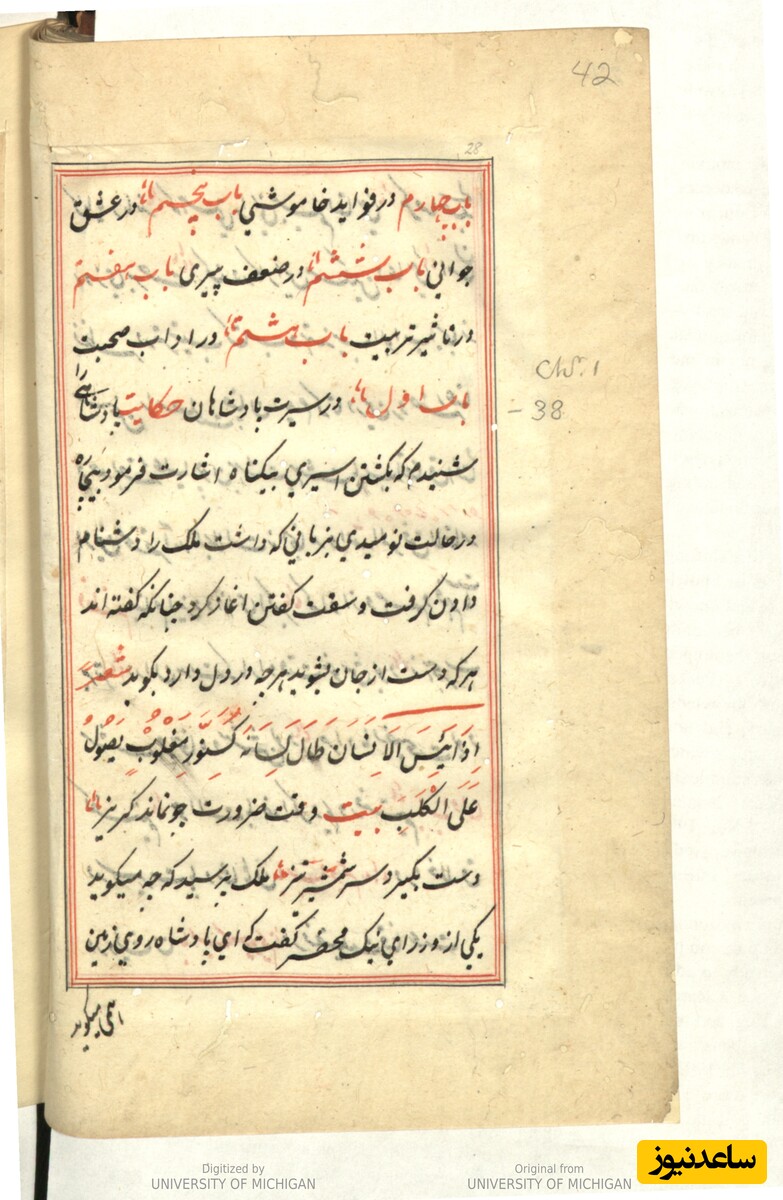 42
28
باب چهارم در فواید خاموشی باب پنجم در عشق
جوانی باب ششم در ضعف پیری باب هفتم
در تاثیر تربیت باب هشتم در اداب صحبت
باب اول در سیرت بادشاهان حکایت پادشاهی را
شنیدم که بکشتن اسیری بیکناه اشارت فرمود بیچاره
در حالت نومیدی بزبانی که داشت ملک را دشنام
دادن کرفت و سقت کفتن اغاز کرد چنانکه کفته اند
هر که دست از جان بشوید هر چه در دل دارد بکوید شعر
اِذَا یَئِسَ الاَنسَان طَالَ لِسَانَهُ کَسِنَّورِ مَغلُوبٌ یَصُولُ
عَلَی الْکَلبَ بیت وقت ضرورت چو نماند کریز
دست بکیرد سر شمشیر تیز ملک پرسید که چه میکوید
یکی از وزرای نیک محضر کفت که ای پادشاه روی زمین
همی میکوید
Ch. 1
- 38
Digitized by
UNIVERSITY OF MICHIGAN
Original from
UNIVERSITY OF MICHIGAN
ساعدنیوز